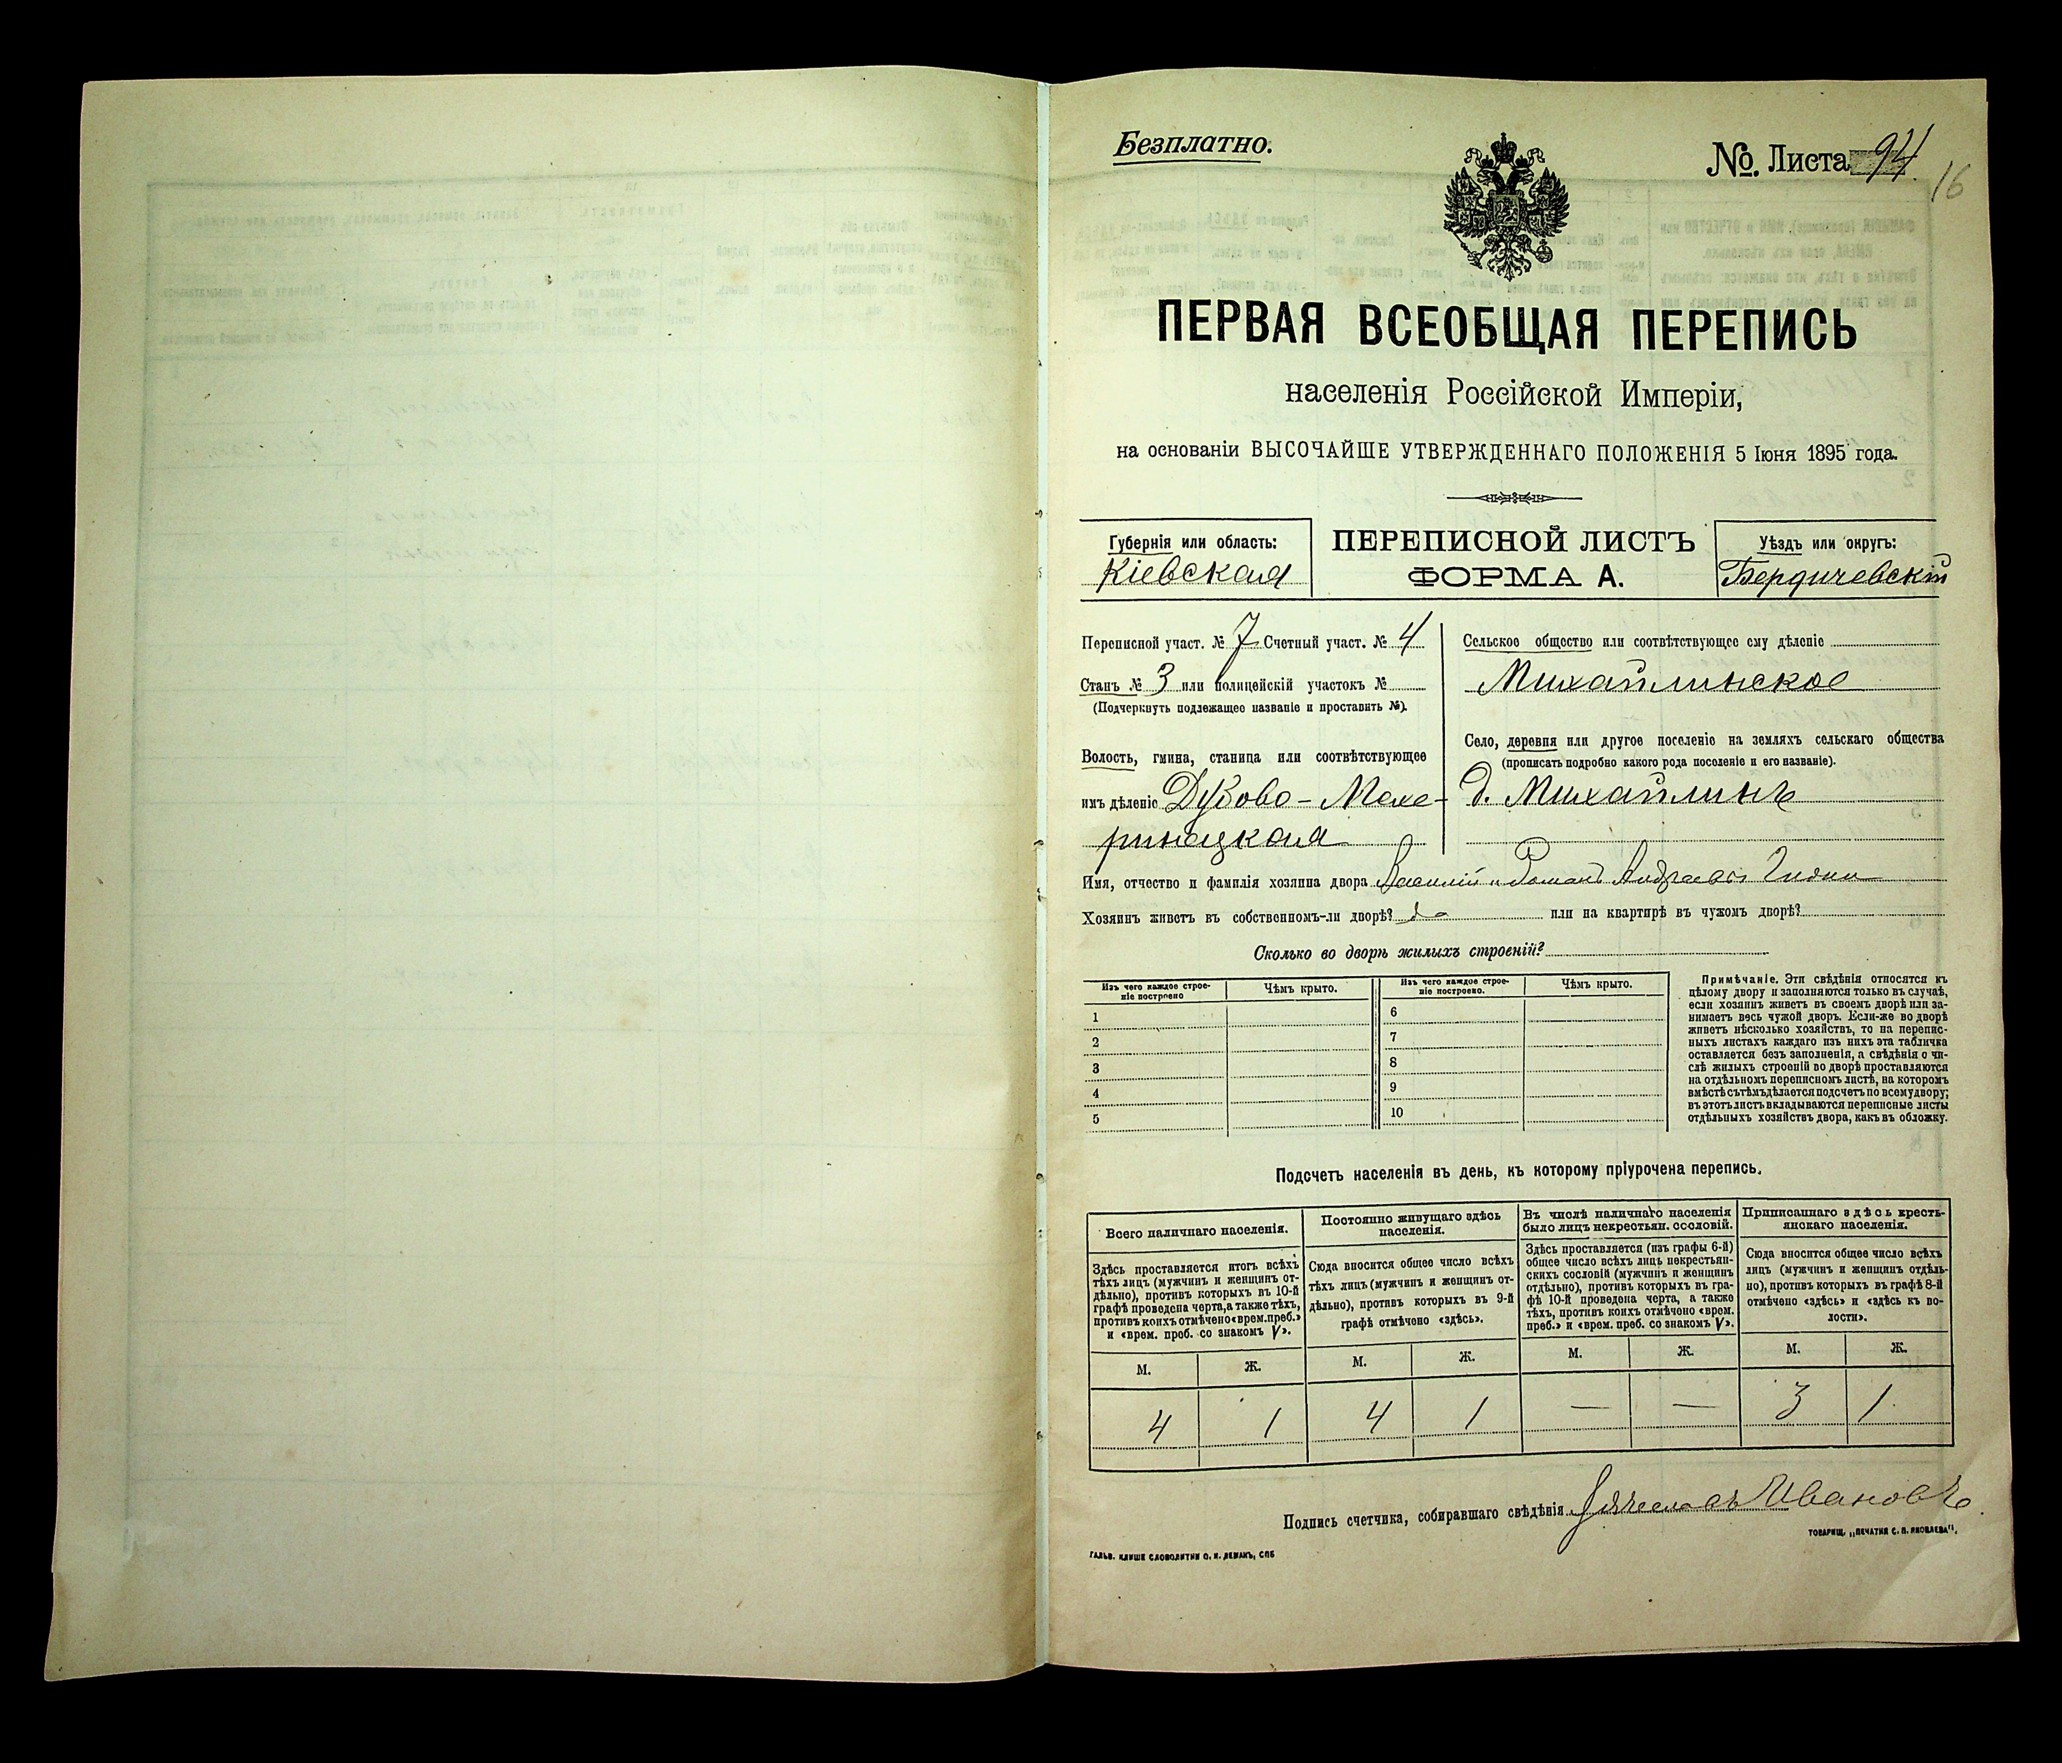 Безплатно.
№. Листа 94
16
ПЕРВАЯ ВСЕОБЩАЯ ПЕРЕПИСЬ
населенія Россійской Имперіи,
на основаніи ВЫСОЧАЙШЕ УТВЕРЖДЕННАГО ПОЛОЖЕНІЯ 5 Іюня 1895 года.
Губернія или область:
Кіевская
ПЕРЕПИСНОЙ ЛИСТЪ
ФОРМА А.
Уѣздъ или округъ:
Бердичевскій
Переписной участ. № 7 Счетный участ. № 4
Станъ № 3 или полицейскій участокъ №
(Подчеркнуть подлежащее названіе и проставить №).
Волость, гмина, станица или соотвѣтствующее
имъ дѣленіе Дубово-Махе-
ринецкая
Сельское общество или соотвѣтствующее ему дѣленіе
Михайлинское
Село, деревня или другое поселеніе на земляхъ сельскаго общества
(прописать подробно какого рода поселеніе и его названіе).
д. Михайлинъ
Имя, отчество и фамилія хозяина двора Василій и Романъ Андреевы
Хозяинъ живетъ въ собственномъ-ли дворѣ? да или на квартирѣ въ чужомъ дворѣ?
Сколько во дворѣ жилыхъ строеній?
Изъ чего каждое строе-
ніе построено
Чѣмъ крыто.
Изъ чего каждое строе-
ніе построено.
Чѣмъ крыто.
1 6
2 7
3 8
4 9
5 10
Примѣчаніе. Эти свѣдѣнія относятся къ
цѣлому двору и заполняются только въ случаѣ,
если хозяинъ живетъ въ своемъ дворѣ или за-
нимаетъ весь чужой дворъ. Если-же во дворѣ
живетъ нѣсколько хозяйствъ, то на перепис-
ныхъ листахъ каждаго изъ нихъ эта табличка
оставляется безъ заполненія, а свѣдѣнія о чи-
слѣ жилыхъ строеній во дворѣ проставляются
на отдѣльномъ переписномъ листѣ, на которомъ
вмѣстѣ съ тѣмъ дѣлается подсчетъ по всему двору;
въ этотъ листъ вкладываются переписные листы
отдѣльныхъ хозяйствъ двора, какъ въ обложку.
Подсчетъ населенія въ день, къ которому пріурочена перепись.
Всего наличнаго населенія.
Здѣсь проставляется итогъ всѣхъ
тѣхъ лицъ (мужчинъ и женщинъ от-
дѣльно), противъ которыхъ въ 10-й
графѣ проведена черта, а также тѣхъ,
противъ коихъ отмѣчено «врем. преб.»
и «врем. преб. со знакомъ V».
Постоянно живущаго здѣсь
населенія.
Сюда вносится общее число всѣхъ
тѣхъ лицъ (мужчинъ и женщинъ от-
дѣльно), противъ которыхъ въ 9-й
графѣ отмѣчено «здѣсь».
Въ числѣ наличнаго населенія
было лицъ некрестьян. сословій.
Здѣсь проставляется (изъ графы 6-й)
общее число всѣхъ лицъ некрестьян-
скихъ сословій (мужчинъ и женщинъ
отдѣльно), противъ которыхъ въ гра-
фѣ 10-й проведена черта, а также
тѣхъ, противъ коихъ отмѣчено «врем.
преб.» и «врем. преб. со знакомъ V».
Приписаннаго здѣсь кресть-
янскаго населенія.
Сюда вносится общее число всѣхъ
лицъ (мужчинъ и женщинъ отдѣль-
но), противъ которыхъ въ графѣ 8-й
отмѣчено «здѣсь» и «здѣсь къ во-
лости».
М. Ж. М. Ж. М. Ж. М. Ж.
4 1 4 1 — — 3 1
Подпись счетчика, собиравшаго свѣдѣнія Ивановъ
ТОВАРИЩ. „ПЕЧАТНЯ С. П. ЯКОВЛЕВА".
ГАЛЬВ. КЛИШЕ СЛОВОЛИТНИ О. И. ЛЕМАНЪ, СПБ